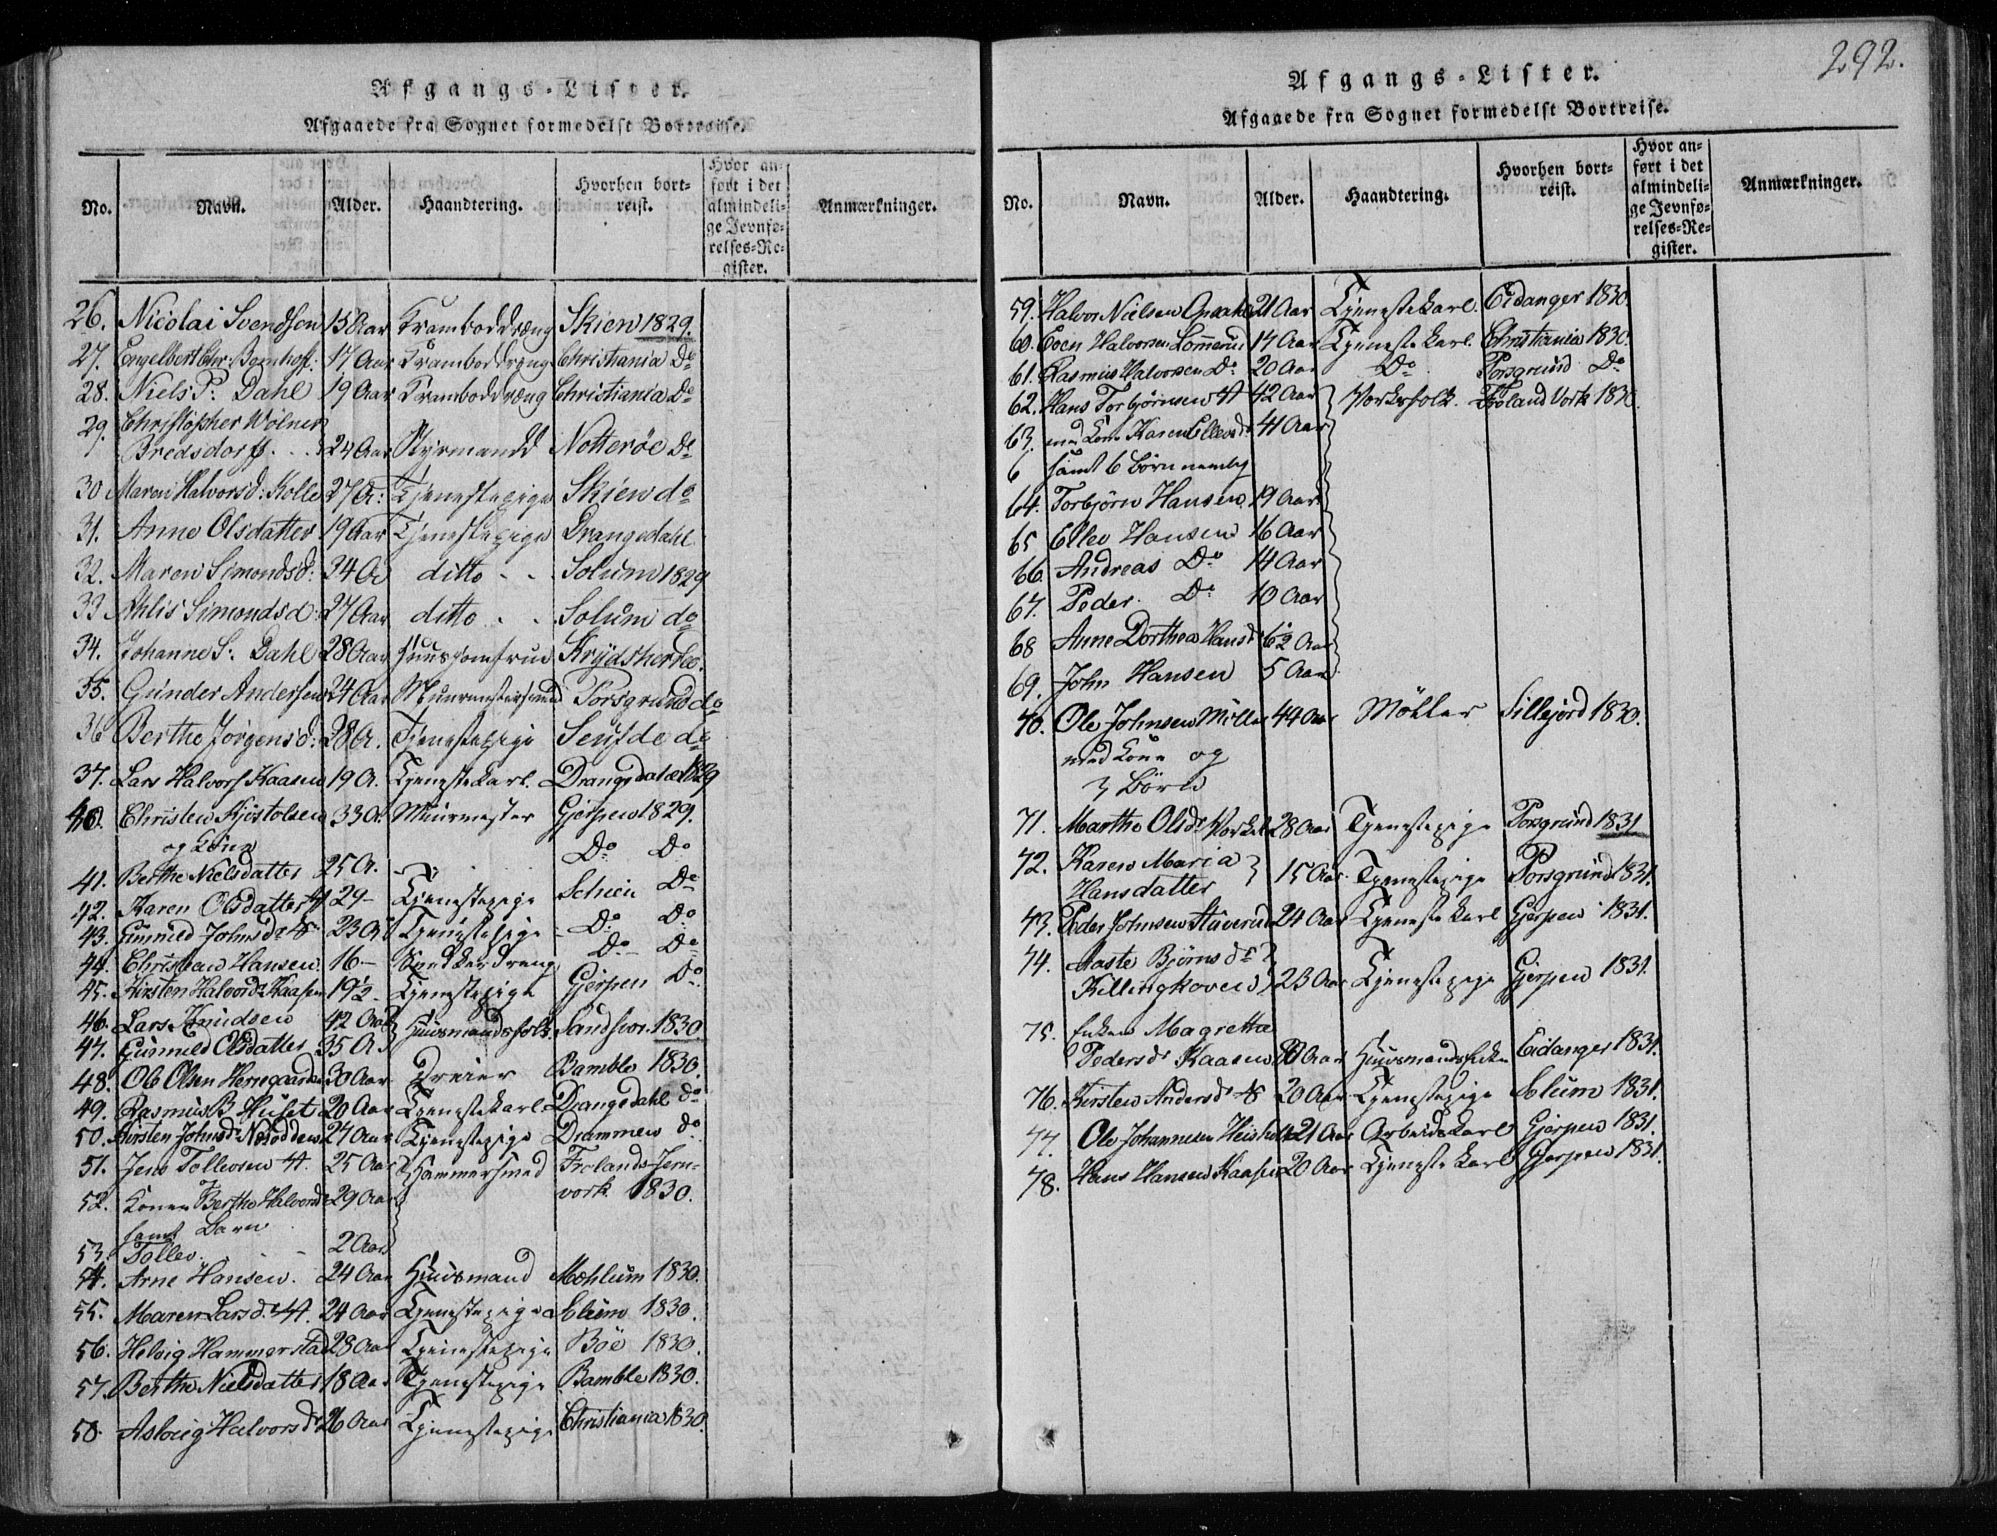 Afgangs-Lister.
Afgaaede fra Sognet formedelst Bortreise.
No. Navn. Alder. Haandtering. Hvorhen bortreist. Hvor anført i det almindelige Jevnførelses-Register. Anmærkninger.
26. Nicolai Svendsen 15 Aar Kramboddræng Skien 1829.
27. Engelbert Chr: Bornhoff: 17 Aar Kramboddræng Christiania Do
28. Niels P. Dahl 19 Aar Kramboddræng Christiania Do
29. Christopher Wölner
Bredsdorff. 24 Aar Styrmand Notteröe Do
30 Maren Halvorsd: Kolle 27 A: Tjenestepige Skien do
31. Anne Olsdatter 19 Aar Tjenestepige Drangedahl
32. Maren Simondsd: 34 A ditto - - Solum 1829
33 Ahlis Simondsd: 27 Aar ditto - - Solum do
34. Johanne S. Dahl 28 Aar Huusjomfrue Krydsherke
35. Gunder Andersen 24 Aar Muurmestersvend Porsgrund do
36 Berthe Jørgensd: 28 A. Tjenestepige Seufde do
37. Lars Halvors Kaasen 19 A. Tjenestekarl. Drangedahl 1829
40. Christen Kjøstolsen 33 A. Muurmester Gjerpen 1829.
og Kone
41. Berthe Nielsdatter 25 A. Do Do
42. Karen Olsdatter 29 - Tjenestepige Schien Do
43. Gunnild Johnsdr 23 A Tjenestepige - Do Do
44. Christian Hansen. 16 - Do - Do
45. Kirsten Halvordr Kaasen 19½ - Tjenestepige Gjerpen Do
46. Lars Knudsen 42 Aar Huusmandsfolk. Sandsvær. 1830
47. Gunnild Olsdatter 35 A
48. Ole Olsen Herregaarden 30 Aar Dreier Bamble 1830.
49. Rasmus B Huset 20 Aar Tjenestekarl Drangedahl do
50. Kirsten Johnsdr Næsodden 24 Aar Tjenestepige Drammen do
51. Jens Tollevsen 25 Aar Hammersmed Frolands Jern-
52. Konen Berthe Halvordr 29 Aar værk 1830.
samt Barn
53. Tollev. - - 2 Aar
54. Arne Hansen. 24 Aar Huusmand Mæhlum 1830.
55. Maren Larsdr 24 Aar Tjenestepige Slum 1830.
56. Helvig Hammerstad 28 Aar Tjenestepige Böe 1830.
57. Berthe Nielsdatter 18 Aar Tjenestepige Bamble 1830.
58. Aslaug Halvorsdr 26 Aar Tjenestepige Christiania 1830.
292.
Afgangs-Lister.
Afgaaede fra Sognet formedelst Bortreise.
No. Navn. Alder. Haandtering. Hvorhen bortreist. Hvor anført i det almindelige Jevnførelses-Register. Anmærkninger.
59. Halvor Nielsen 21 Aar Tjenestekarl. Eidanger 1830.
60. Even Halvorsen Lommerud 14 Aar Tjenestekarl. Christiania 1830.
61. Rasmus Halvorsen Do 20 Aar Do Porsgrund Do
62. Hans Torbjørnsen 42 Aar Værksfolk. Froland Værk 1830.
63. med Kone Karen Ellevsdr 41 Aar
6 samt 6 Børn nemlig
64. Torbjörn Hansen 19 Aar
65 Ellev Hansen 16 Aar
66. Andreas Do 14 Aar
67. Peder. Do 10 Aar
68 Anne Dorthea Hansdr 6½ Aar
69. John Hansen 5 Aar
70. Ole Johnsen Möller 44 Aar Möller Sillejord 1830.
med Kone og
3 Börn
71. Marthe Olsdr Værket 28 Aar Tjenestepige Porsgrund 1831
72. Karen Maria
Hansdatter 15 Aar Tjenestepige Porsgrund 1831.
73. Peder Johnsen Stuverud 24 Aar Tjenestekarl Gjerpen 1831.
74. Aaste Bjørnsdr
Killingkoven 23 Aar Tjenestepige Gjerpen 1831.
75. Enken Magrethe
Pedersdr Kaasen Aar Huusmandsenke Eidanger 1831.
76. Kirsten Andersdr 20 Aar Tjenestepige Slum 1831.
77. Ole Johannesen 21 Aar Arbeidskarl Gjerpen 1831.
78. Hans Hansen Kaasen 20 Aar Tjenestekarl Gjerpen 1831.